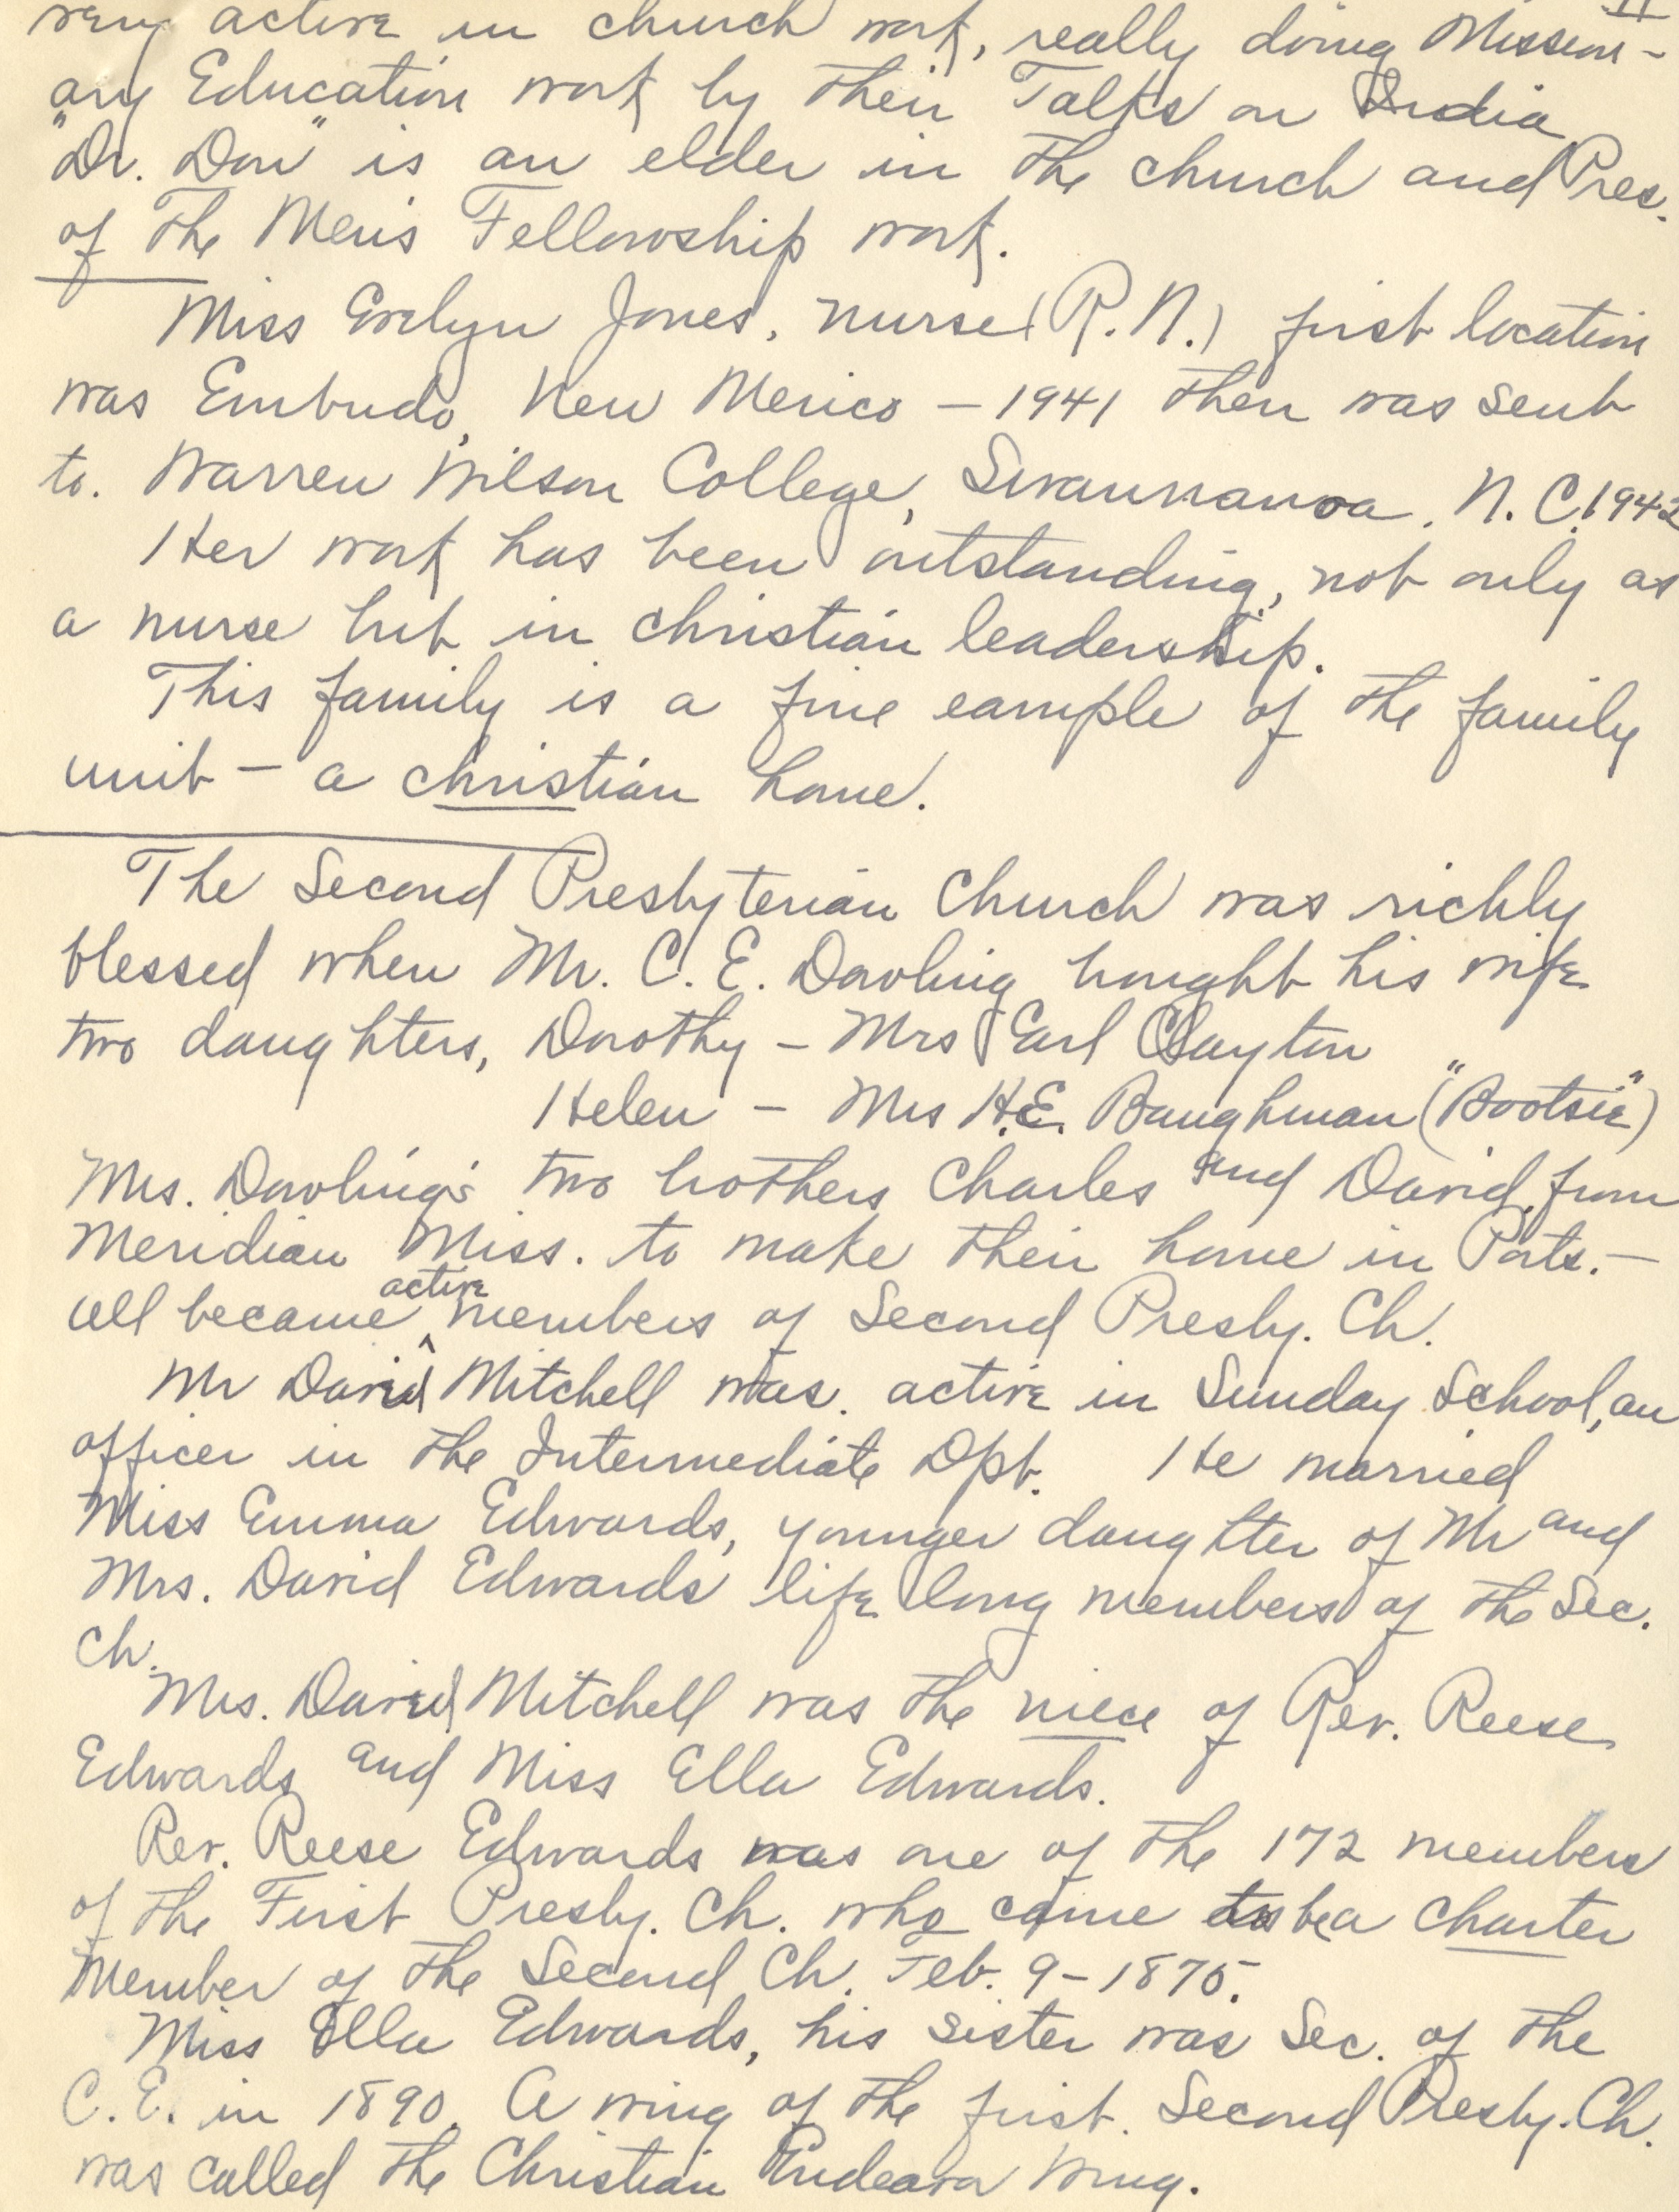 II
very active in church work, really doing Mission-
ary Education work by their Talks on India
"Dr. Don" is an elder in the church and Pres.
of the Men's Fellowship work.
Miss Evelyn Jones, nurse (R.N.) first location
was Embudo, New Mexico – 1941 then was sent
to. Warren Wilson College, Swannanoa, N.C. 1942
Her work has been outstanding, not only as
a nurse but in christian leadership.
This family is a fine eample of the family
unit – a christian home.
The Second Presbyterian Church was richly
blessed when Mr. C. E. Dowling bought his wife
two daughters, Dorothy – Mrs Earl Clayton
Helen – Mrs H.E. Baughman ("Bootsie")
Mrs. Dowling's two brothers Charles and David, from
Meridian Miss. to make their home in Ports. –
all became active members of Second Presby. Ch.
Mr David Mitchell was active in Sunday School, an
officer in the Intermediate Dpt. He married
Miss Emma Edwards, younger daughter of Mr and
Mrs. David Edwards life long members of the Sec.
Ch.
Mrs. David Mitchell was the niece of Rev. Reese
Edwards and Miss Ella Edwards.
Rev. Reese Edwards was one of the 172 members
of the First Presby. Ch. who came to be a charter
Member of the Second Ch. Feb. 9 – 1875.
Miss Ella Edwards, his sister was Sec. of the
C.E. in 1890. A wing of the first. Second Presby. Ch.
was called the Christian Endeavor Wing.